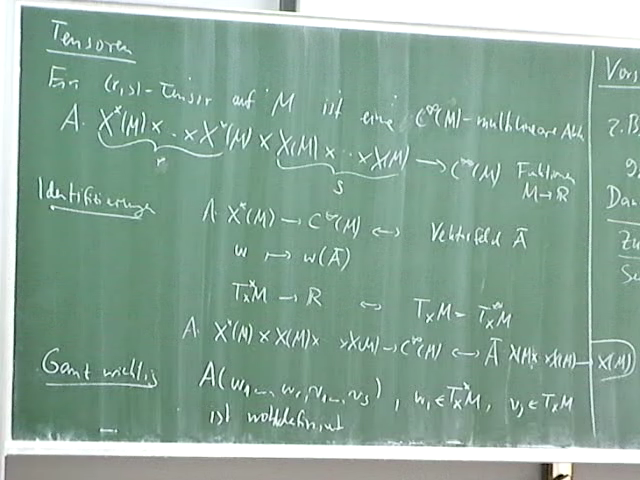 Tensoren
Ein (r,s)-Tensor auf M ist eine C^∞(M)-multilineare Abb
A: X*(M) × ... × X*(M) × X(M) × ... × X(M) → C^∞(M) Funktionen
r s M→ℝ
Identifizierungen A: X*(M) → C^∞(M) ↔ Vektorfeld Ā
w ↦ w(Ā)
T_x*M → ℝ ↔ T_xM = T_x**M
A: X*(M) × X(M) × ×X(M) → C^∞(M) ↔ Ā X(M)× ×X(M) → X(M)
Ganz wichtig A(w_1 ..., w_r, v_1 ..., v_s), w_i ∈ T_x*M, v_j ∈ T_xM
ist wohldefiniert
Vors
z.B
Da
Zu
Se